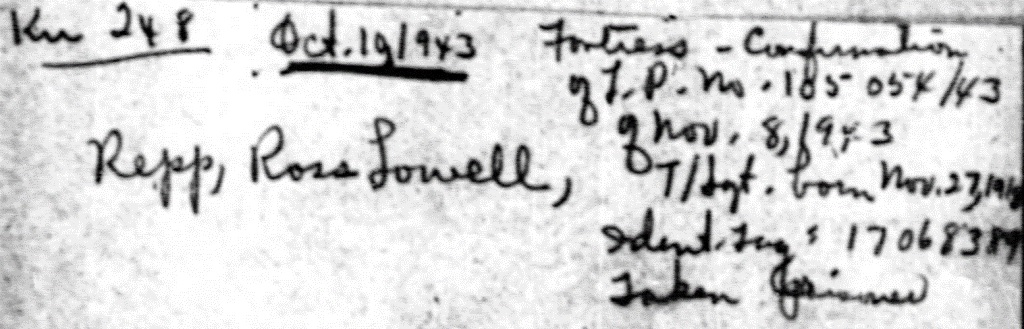 Ku 248 Oct. 19/943 Fortress - Confirmation
of T.P. No. 185 054/43
of Nov. 8, 1943
Repp, Ross Lowell, T/Sgt. born Nov. 27,
Ident. Tag: 1706838
Taken Prisoner